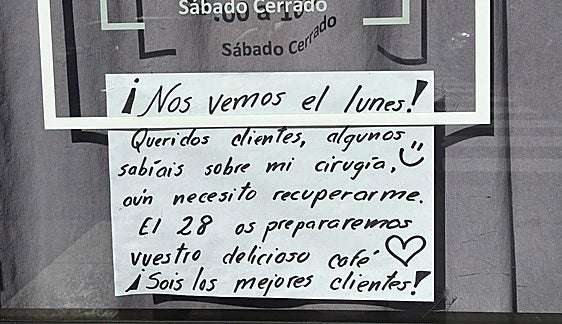 Sábado Cerrado
:00 a 10
Sábado Cerrado
¡Nos vemos el lunes!
Queridos clientes, algunos
sabíais sobre mi cirugía,
aún necesito recuperarme.
El 28 os prepararemos
vuestro delicioso café
¡Sois los mejores clientes!